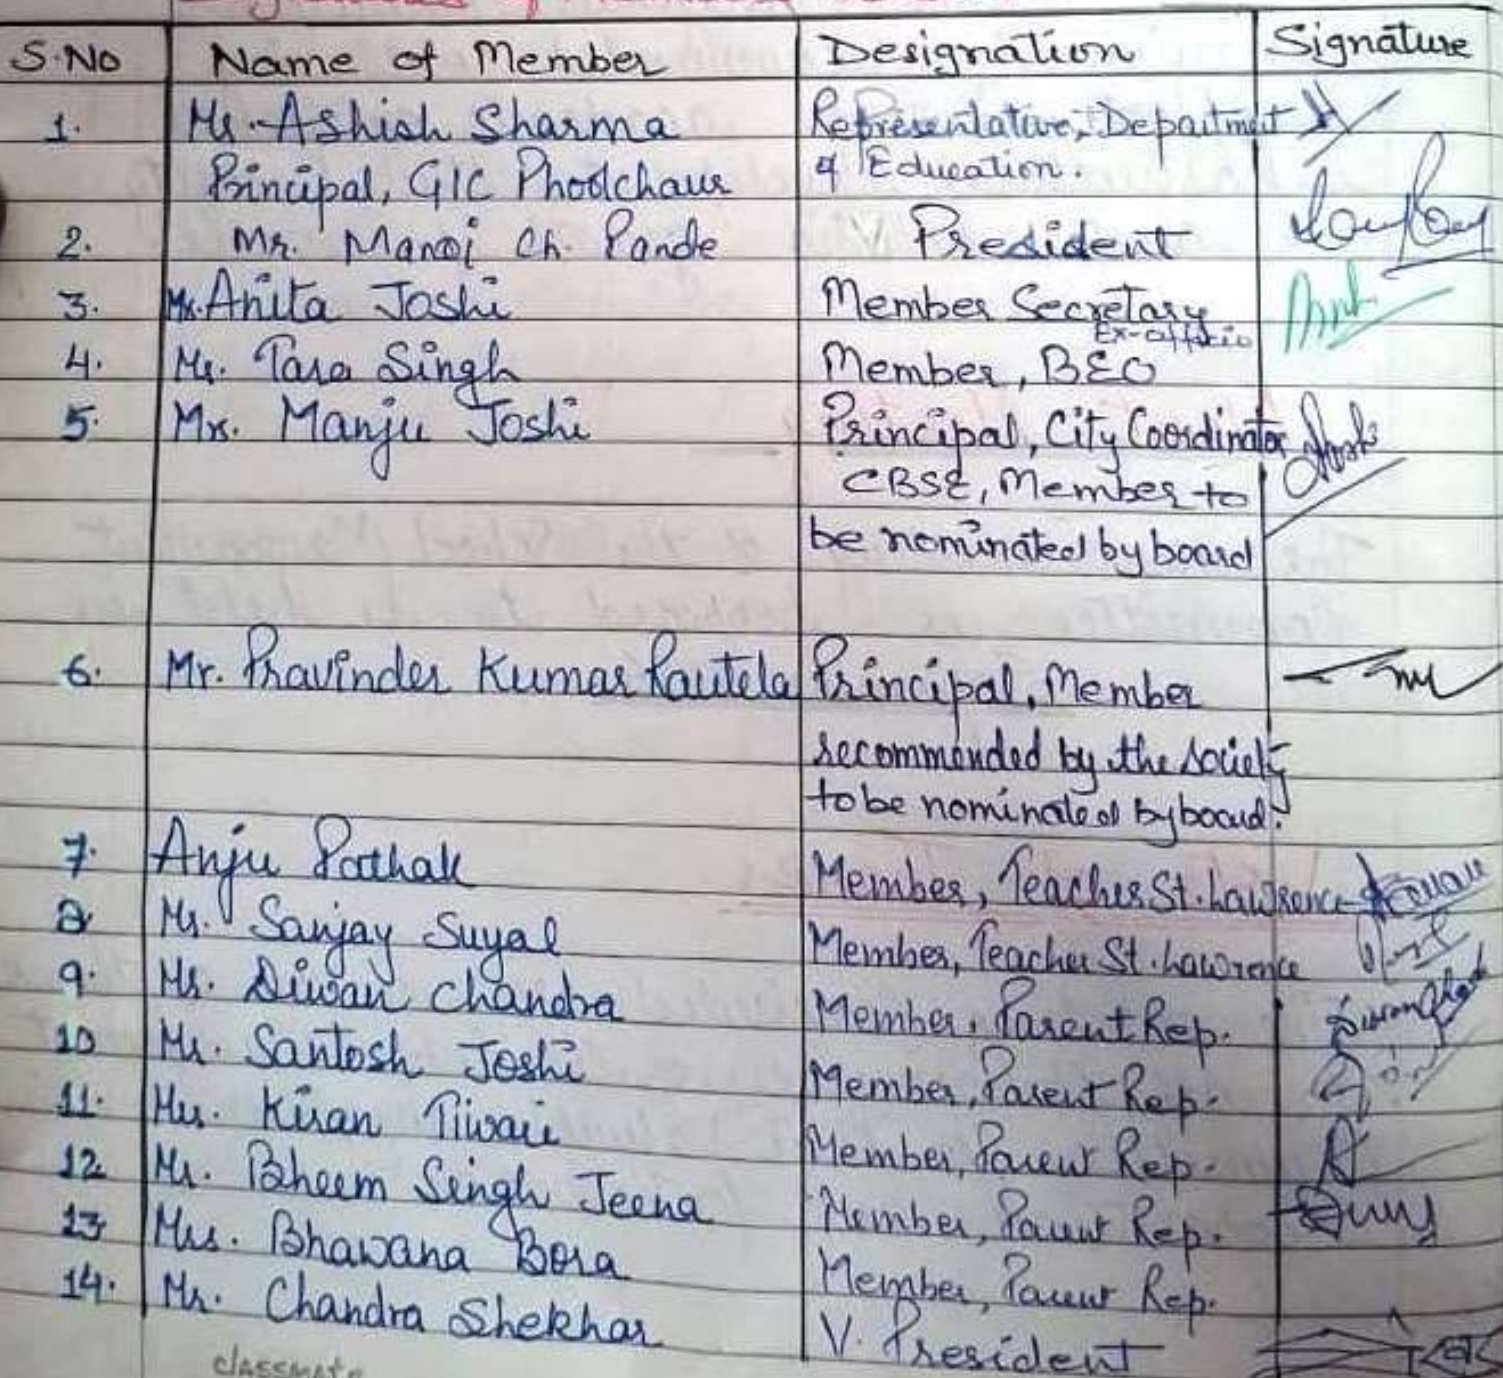 S.No Name of Member Designation Signature
1. Mr. Ashish Sharma Representative, Department
Principal, GIC Phoolchaur of Education.
2. Mr. Manoj Ch. Pande President
3. Ms. Anita Joshi Member Secretary
Ex-officio
4. Mr. Tara Singh Member, BEO
5. Mrs. Manju Joshi Principal, City Coordinator
CBSE, Member to
be nominated by board
6. Mr. Pravinder Kumar Rautela Principal, Member
recommended by the society
to be nominated by board.
7. Anju Pathak Member, Teacher St. Lawrence
8 Mr. Sanjay Suyal Member, Teacher St. Lawrence
9. Mr. Diwan Chandra Member, Parent Rep.
10 Mr. Santosh Joshi Member, Parent Rep.
11. Mrs. Kiran Tiwari Member, Parent Rep.
12 Mr. Bheem Singh Jeena Member, Parent Rep.
13 Mrs. Bhawana Bora Member, Parent Rep.
14. Mr. Chandra Shekhar V. President
classmate